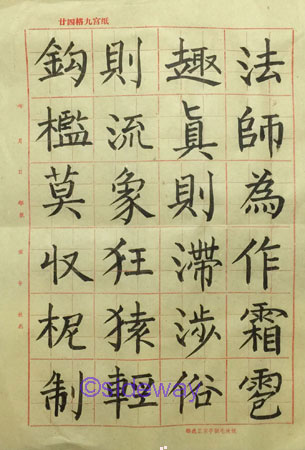 廿四格九宮纸
法師為作霜雹
趣眞則滯涉俗
則流象狂猿輕
鉤檻莫収柅制
©sideway